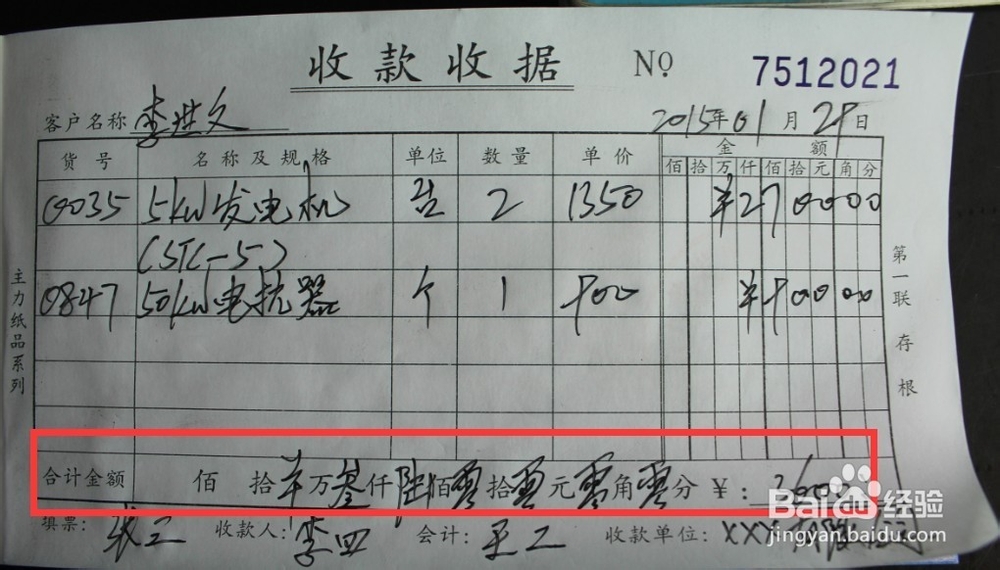 收款收据 No 7512021
客户名称 李洪文 2015年01月29日
货号 名称及规格 单位 数量 单价 金额
佰 拾 万 仟 佰 拾 元 角 分
0035 5kw发电机 台 2 1350 ¥270000
(STC-5)
0847 50kw电抗器 个 1 900 ¥90000
合计金额 佰 拾 万 叁仟 陆佰 零拾 零元 零角 零分 ¥: 3600
填票: 张三 收款人: 李四 会计: 王二 收款单位: XXX
主力纸品系列
第一联 存根
Baidu经验
jingyan.baidu.com